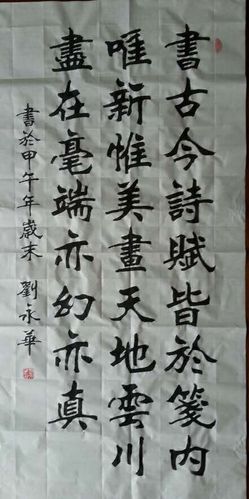 書古今詩賦皆於箋内
唯新惟美畫天地雲川
盡在毫端亦幻亦真
書於甲午年歲末 劉永華